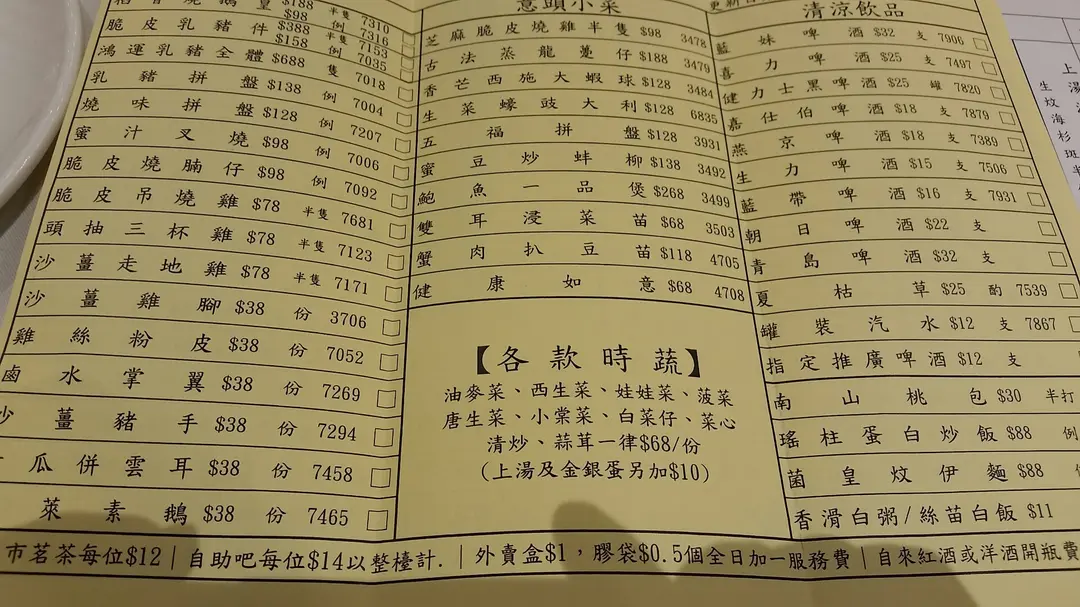 $188 半隻 7310
$98 例 7316
脆皮乳豬件 $388 半隻 7153
$158 例 7035
鴻運乳豬全體 $688 隻 7018
乳豬拼盤 $138 例 7004
燒味拼盤 $128 例 7207
蜜汁叉燒 $98 例 7006
脆皮燒腩仔 $98 例 7092
脆皮吊燒雞 $78 半隻 7681
頭抽三杯雞 $78 半隻 7123
沙薑走地雞 $78 半隻 7171
沙薑雞腳 $38 份 3706
雞絲粉皮 $38 份 7052
鹵水掌翼 $38 份 7269
沙薑豬手 $38 份 7294
瓜併雲耳 $38 份 7458
萊素鵝 $38 份 7465
意頭小菜
芝麻脆皮燒雞半隻 $98 3478
古法蒸龍躉仔 $188 3479
香芒西施大蝦球 $128 3484
生菜蠔豉大利 $128 6835
五福拼盤 $128 3931
蜜豆炒蚌柳 $138 3492
鮑魚一品煲 $268 3499
雙耳浸菜苗 $68 3503
蟹肉扒豆苗 $118 4705
健康如意 $68 4708
【各款時蔬】
油麥菜、西生菜、娃娃菜、菠菜
唐生菜、小棠菜、白菜仔、菜心
清炒、蒜茸一律$68/份
(上湯及金銀蛋另加$10)
清涼飲品
藍妹啤酒 $32 支 7906
喜力啤酒 $25 支 7497
健力士黑啤酒 $25 罐 7820
嘉仕伯啤酒 $18 支 7879
燕京啤酒 $18 支 7389
生力啤酒 $15 支 7506
藍帶啤酒 $16 支 7931
朝日啤酒 $22 支
青島啤酒 $32 支
夏枯草 $25 酌 7539
罐裝汽水 $12 支 7867
指定推廣啤酒 $12 支
南山桃包 $30 半打
瑤柱蛋白炒飯 $88 例
菌皇炆伊麵 $88
香滑白粥/絲苗白飯 $11
市茗茶每位$12｜自助吧每位$14以整檯計.｜外賣盒$1，膠袋$0.5個全日加一服務費｜自來紅酒或洋酒開瓶費
上湯
生炆海杉斑半